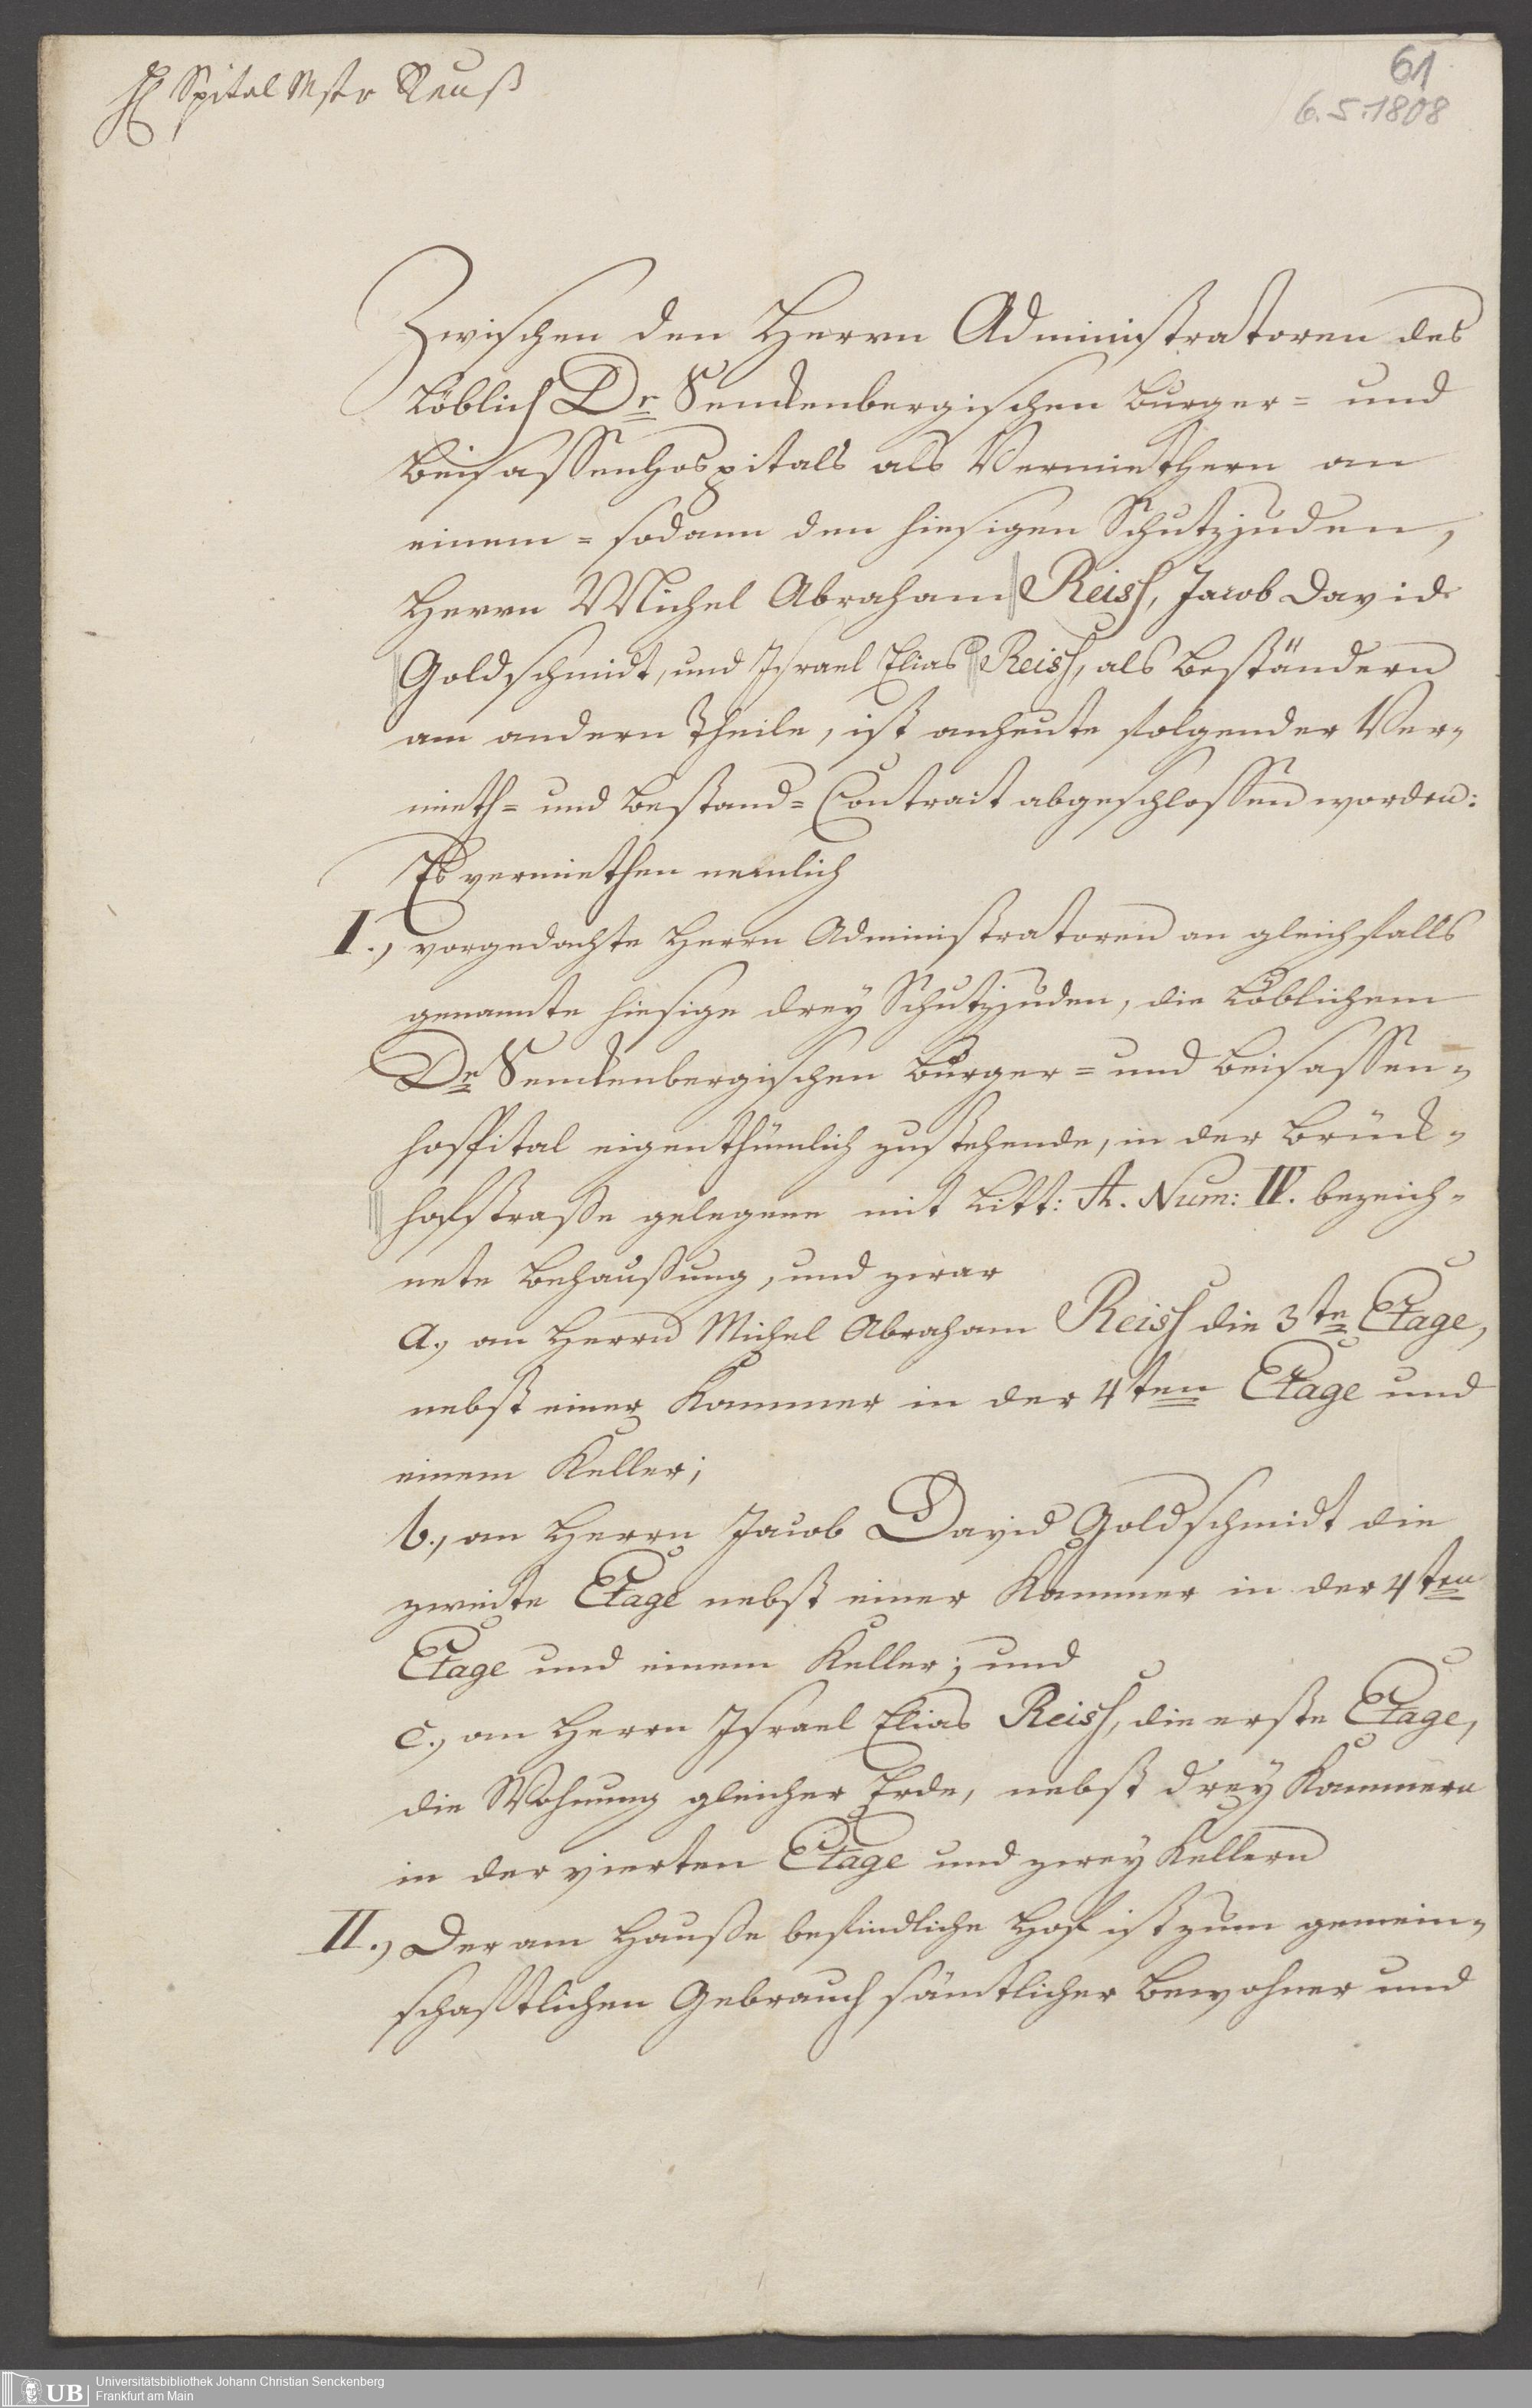 61
H Spital Mstr Reuß
6.5.1808
Zwischen den Herrn Administratoren des
Löblich Dr Senckenbergischen Burger= und
Beisassenhospitals als Vermiethern an
einem= sodann den hiesigen Schutzjuden,
Herrn Michel Abraham Reiss, Jacob David
Goldschmidt, und Israel Elias Reiss, als Beständern
am andern Theile, ist anheute folgender Ver=
mieth= und Bestand=Contract abgeschlossen worden:
Es vermiethen nemlich
I.) vorgedachte Herrn Administratoren an gleichfalls
genannte hiesige drey Schutzjuden, die Löblichem
Dr Senckenbergischen Bürger= und Beisassen=
hospital eigenthümlich zustehende, in der Brück=
hofstrasse gelegene mit Litt: A. Num: IV. bezeich=
nete Behaussung, und zwar
a.) an Herrn Michel Abraham Reiss die 3te Etage,
nebst einer Kammer in der 4ten Etage und
einem Keller;
b.) an Herrn Jacob David Goldschmidt die
zweite Etage nebst einer Kammer in der 4ten
Etage und einem Keller; und
c.) an Herrn Israel Elias Reiss, die erste Etage,
die Wohnung gleicher Erde, nebst drey Kammern
in der vierten Etage und zwey Kellern
II.) Der am Hausse befindliche Hof ist zum gemein=
schaftlichen Gebrauch sämtlicher Bewohner und
UB Universitätsbibliothek Johann Christian Senckenberg
Frankfurt am Main